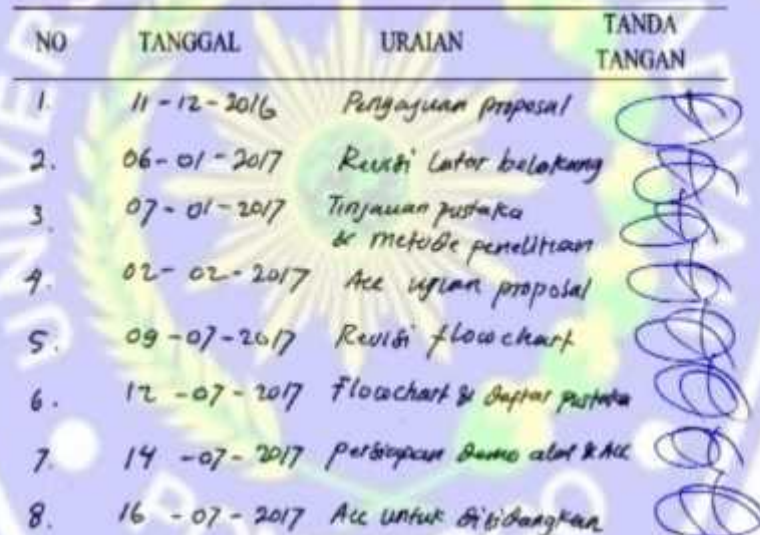 NO TANGGAL URAIAN TANDA TANGAN
1. 11-12-2016 Pengajuan proposal
2. 06-01-2017 Revisi Latar belakang
3. 07-01-2017 Tinjauan pustaka
& metode penelitian
4. 02-02-2017 Acc ujian proposal
5. 09-07-2017 Revisi flowchart
6. 12-07-2017 Flowchart & daftar pustaka
7. 14-07-2017 persiapan demo alat & Acc
8. 16-07-2017 Acc untuk disidangkan
UNIVERS